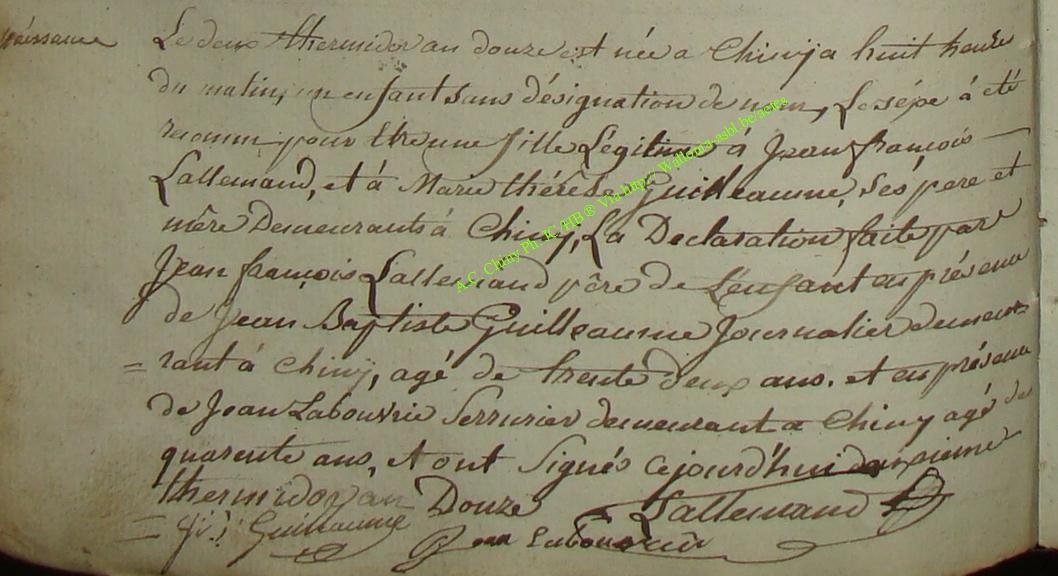 Naissance
Le deux thermidor an douze est née a Chiny a huit heure
du matin, un enfant sans désignation de nom, Le sépe à été
reconnu pour Etre une fille Légitime à Jean françois
Lallemand, et à Marie thérèse Guilleaume, Ses pere et
mêre Demeurants à Chiny, La Declaration faite par
Jean françois Lallemand pêre de L'enfant en présence
de Jean Baptiste Guilleaume Journalier demeu-
= rant à Chiny, agé de trente deux ans. et en présence
de Jean Labouvrie Serrurier demeurant a Chiny agé de
quarente ans, et ont Signés cejourd'hui deuxieme
thermidor an Douze Lallemand
= Guillaume Jean Labouvrie
A.C. Chiny Ph. JC HB® Via http://Wallonia-asbl.be/actes